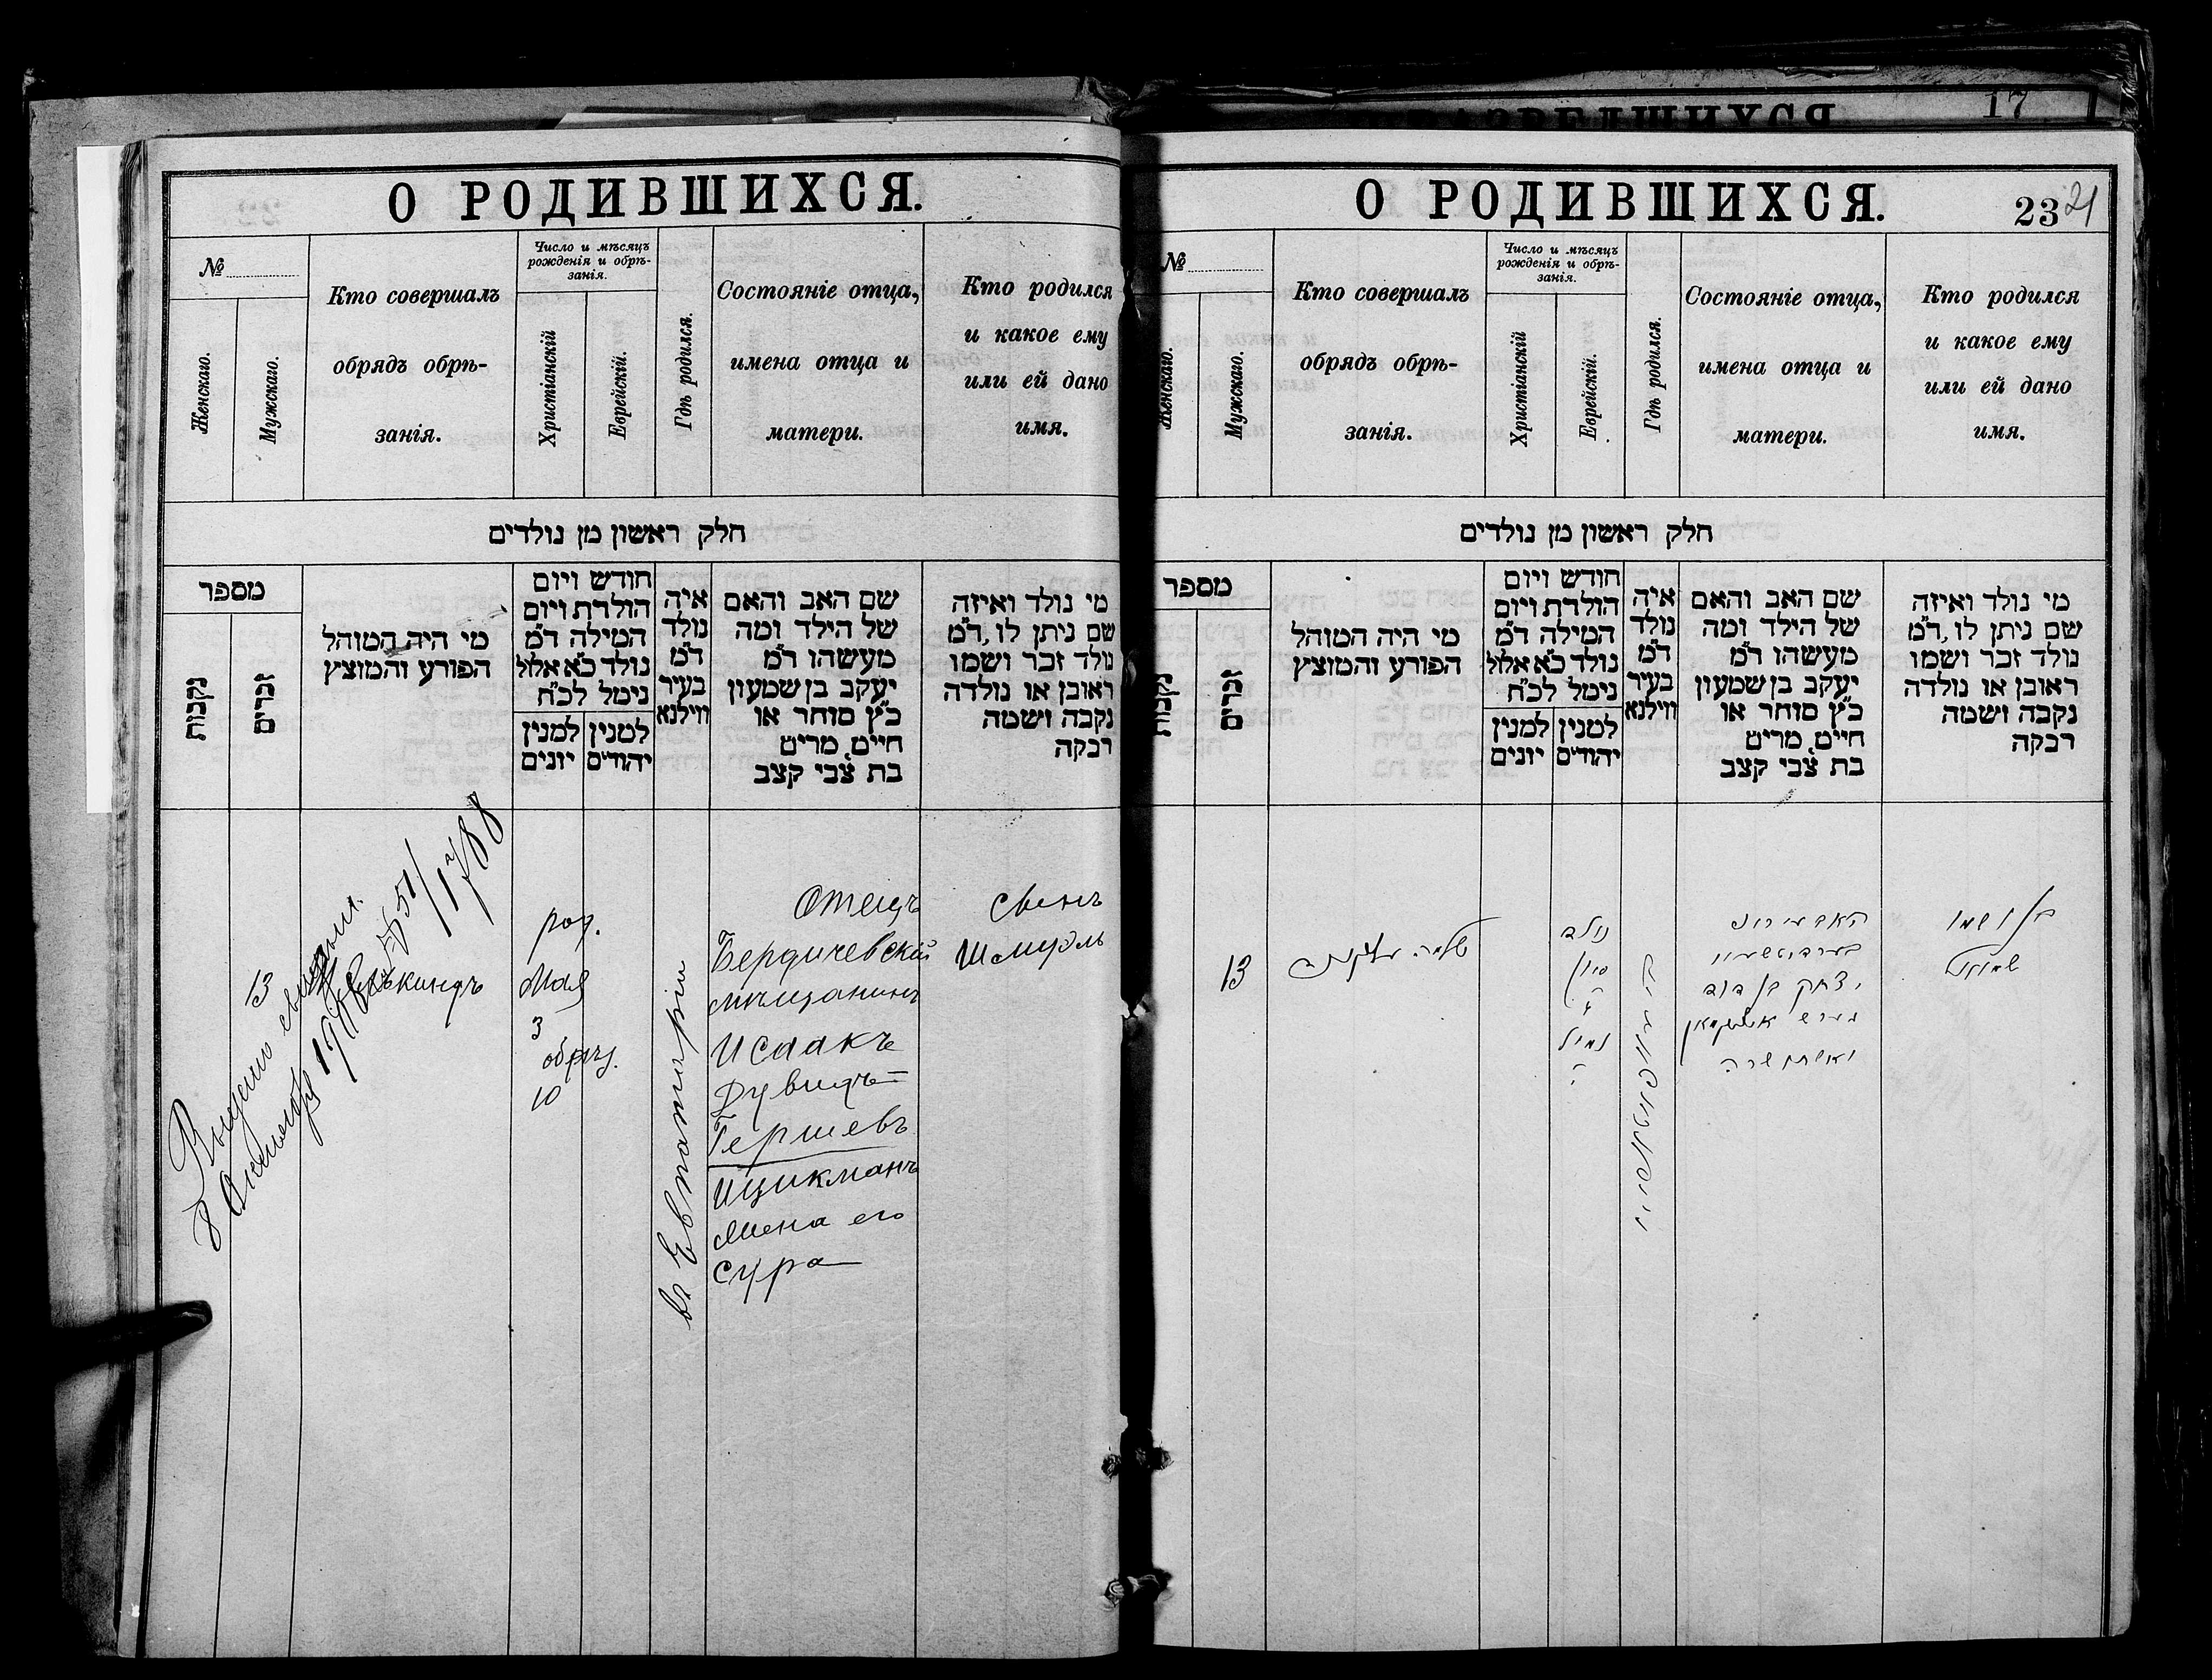 17
О РОДИВШИХСЯ.
№
Женскаго.
Мужскаго.
Кто совершалъ
обрядъ обрѣ-
занія.
Число и мѣсяцъ
рожденія и обрѣ-
занія.
Христіанскій
Еврейскій.
Гдѣ родился.
Состояніе отца,
имена отца и
матери.
Кто родился
и какое ему
или ей дано
имя.
חלק ראשון מן נולדים
מספר
נקבות
זכרים
מי היה המוהל
הפורע והמוצץ
חודש ויום
הולדת ויום
המילה ד"מ
נולד כ"א אלול
נימל לכ"ח
למנין יונים
למנין יהודים
איה
נולד
ד"מ
בעיר
ווילנא
שם האב והאם
של הילד ומה
מעשהו ד"מ
יעקב בן שמעון
כ"ץ סוחר או
חייט מרים
בת צבי קצב
מי נולד ואיזה
שם ניתן לו, ד"מ
נולד זכר ושמו
ראובן או נולדה
נקבה ושמה
רבקה
13
8
1788
род.
Мая
3
обрѣз.
10
въ Евпаторіи
Отецъ
Бердичевскій
мѣщанинъ
Исаакъ
Дувидъ
Гершевъ
Ицикманъ
Жена его
Сура
Сынъ
Шмуэль
О РОДИВШИХСЯ.
23 21
№
Женскаго.
Мужскаго.
Кто совершалъ
обрядъ обрѣ-
занія.
Число и мѣсяцъ
рожденія и обрѣ-
занія.
Христіанскій
Еврейскій.
Гдѣ родился.
Состояніе отца,
имена отца и
матери.
Кто родился
и какое ему
или ей дано
имя.
חלק ראשון מן נולדים
מספר
נקבות
זכרים
מי היה המוהל
הפורע והמוצץ
חודש ויום
הולדת ויום
המילה ד"מ
נולד כ"א אלול
נימל לכ"ח
למנין יונים
למנין יהודים
איה
נולד
ד"מ
בעיר
ווילנא
שם האב והאם
של הילד ומה
מעשהו ד"מ
יעקב בן שמעון
כ"ץ סוחר או
חייט מרים
בת צבי קצב
מי נולד ואיזה
שם ניתן לו, ד"מ
נולד זכר ושמו
ראובן או נולדה
נקבה ושמה
רבקה
13
נולד
סיון
נמול
יצחק בן דוד
ואשתו שרה
בן ושמו
שמואל